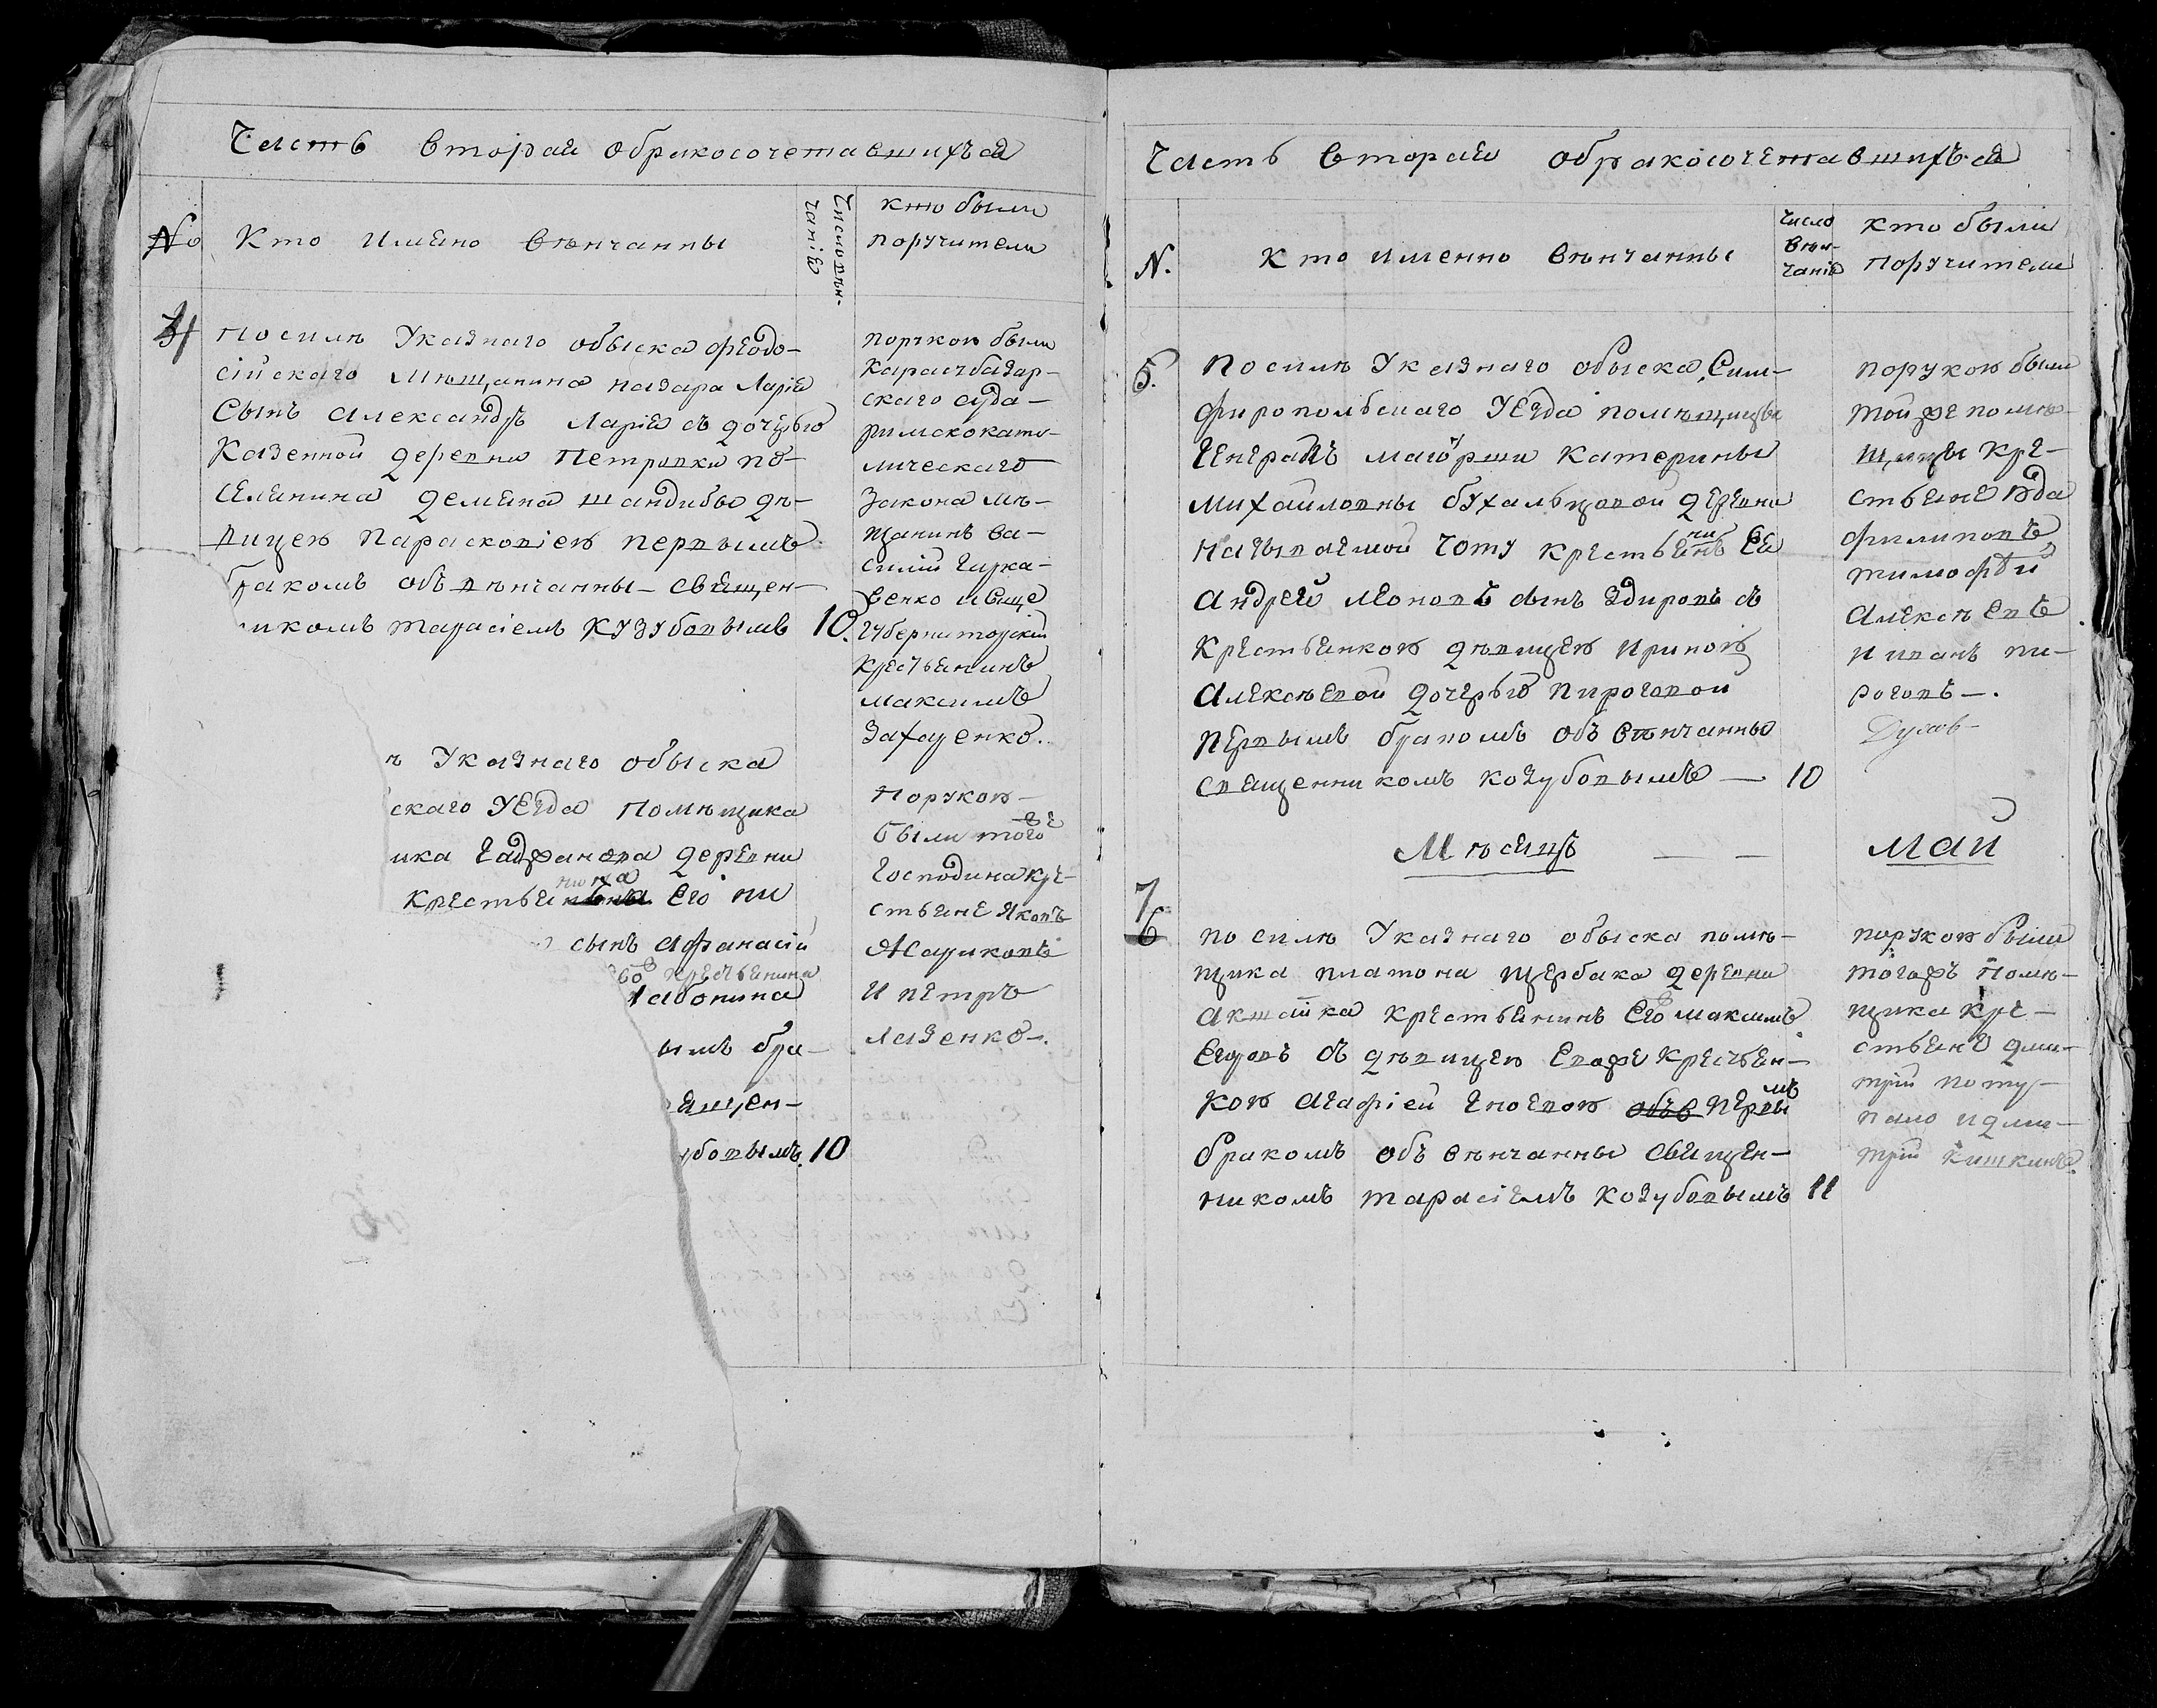 Часть вторая обракосочетавшихъся
№ Кто имено венчанны
Число вѣнчанія
кто были
поручители
4 По силѣ Указнаго обыска феодо-
сійскаго Мѣщанина назара Ларіа
Сынъ Александръ Ларіа съ дочерью
Казенной деревни Петровки по-
селянина демяна шандибы дѣ-
вицею Параскопіею первымъ
бракомъ объвѣнчанны – священ-
никомъ тарасіемъ Кузубовымъ 10.
порукою были
Карасубазар-
скаго суда –
римскокато-
лическаго
закона мѣ-
щанинъ ва-
силій
венко и
губернит
крестьянинъ
максимъ
Захаренко.
ѣ Указнаго обыска
скаго Уезда Помѣщика
ика деревни
крестьянина его
сынъ афанасій
крестьянина
ымъ бра-
ящен-
убовымъ. 10
Порукою –
были того же
Господина кре-
стьяне Яковъ
Жариковъ
и петръ
Лазенко –.
Часть вторая обракосочетавшихъся
N. Кто именно вѣнчанны
Число
вѣн-
чаніе
кто были
поручители
5. По силѣ Указнаго обыска, Сим-
фиропольскаго Уезда помѣщицы
Генералъ маіорши Катерины
Михайловны бухальцовой деревни
называемой Чоту крестьянинъ Ея
Андрей Леоновъ сынъ здировъ съ
Крестьянкою дѣвицею ириною
Алексѣевой дочерью Пироговой
первымъ бракомъ объвѣнчанны
священникомъ козубовымъ — 10
порукою были
той же помѣ-
щицы кре-
стьяне
филиповъ
тимофѣй
Алексѣевъ
и иванъ пи-
роговъ —.
Мѣсяцъ — — май
7
6 по силѣ Указнаго обыска помѣ-
щика платона щербака деревни
акшайка крестьянинъ Его максимъ
Егоровъ съ дѣвицею Евоже крестьян-
кою агафіей Гноевою объв первымъ
бракомъ объвѣнчанны священ-
никомъ тарасіемъ козубовымъ 11
порукою были
тогожъ помѣ-
щика кре-
стьяне дми-
трій поту-
пало и дми-
трій кишкинъ.